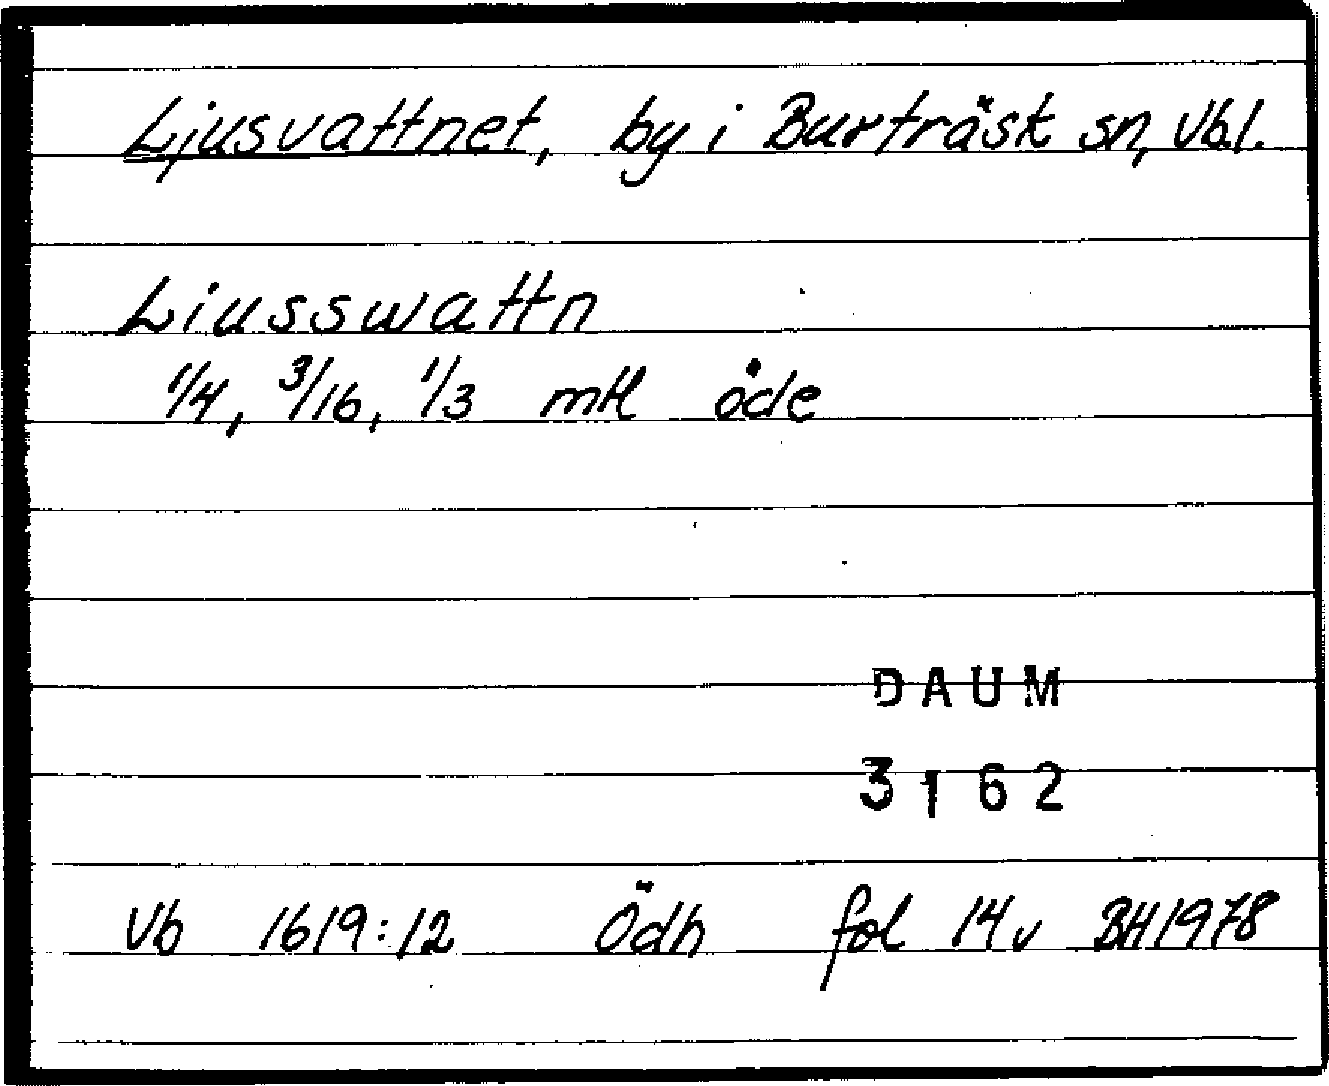 Ljusvattnet, by i Burträsk sn, Vb.l.
Liusswattn
1/4, 3/16, 1/3 mtl öde
DAUM
3162
Vb 1619:12 Ödh fol 14v BH1978